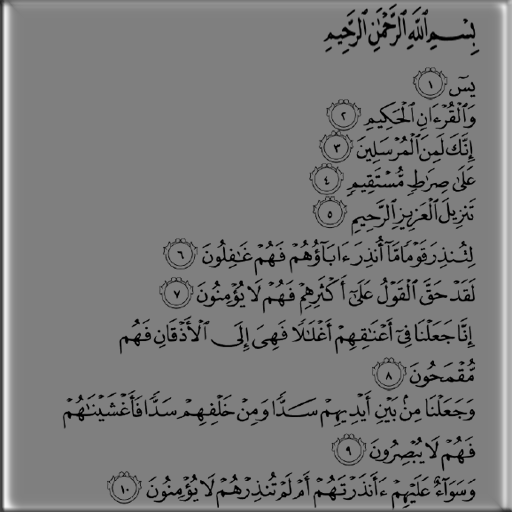 بِسْمِ ٱللَّهِ ٱلرَّحْمَٰنِ ٱلرَّحِيمِ
يسٓ ١
وَٱلْقُرْءَانِ ٱلْحَكِيمِ ٢
إِنَّكَ لَمِنَ ٱلْمُرْسَلِينَ ٣
عَلَىٰ صِرَٰطٍ مُّسْتَقِيمٍ ٤
تَنزِيلَ ٱلْعَزِيزِ ٱلرَّحِيمِ ٥
لِتُنذِرَ قَوْمًا مَّآ أُنذِرَ ءَابَآؤُهُمْ فَهُمْ غَٰفِلُونَ ٦
لَقَدْ حَقَّ ٱلْقَوْلُ عَلَىٰٓ أَكْثَرِهِمْ فَهُمْ لَا يُؤْمِنُونَ ٧
إِنَّا جَعَلْنَا فِىٓ أَعْنَٰقِهِمْ أَغْلَٰلًا فَهِىَ إِلَى ٱلْأَذْقَانِ فَهُم
مُّقْمَحُونَ ٨
وَجَعَلْنَا مِنۢ بَيْنِ أَيْدِيهِمْ سَدًّا وَمِنْ خَلْفِهِمْ سَدًّا فَأَغْشَيْنَٰهُمْ
فَهُمْ لَا يُبْصِرُونَ ٩
وَسَوَآءٌ عَلَيْهِمْ ءَأَنذَرْتَهُمْ أَمْ لَمْ تُنذِرْهُمْ لَا يُؤْمِنُونَ ١٠